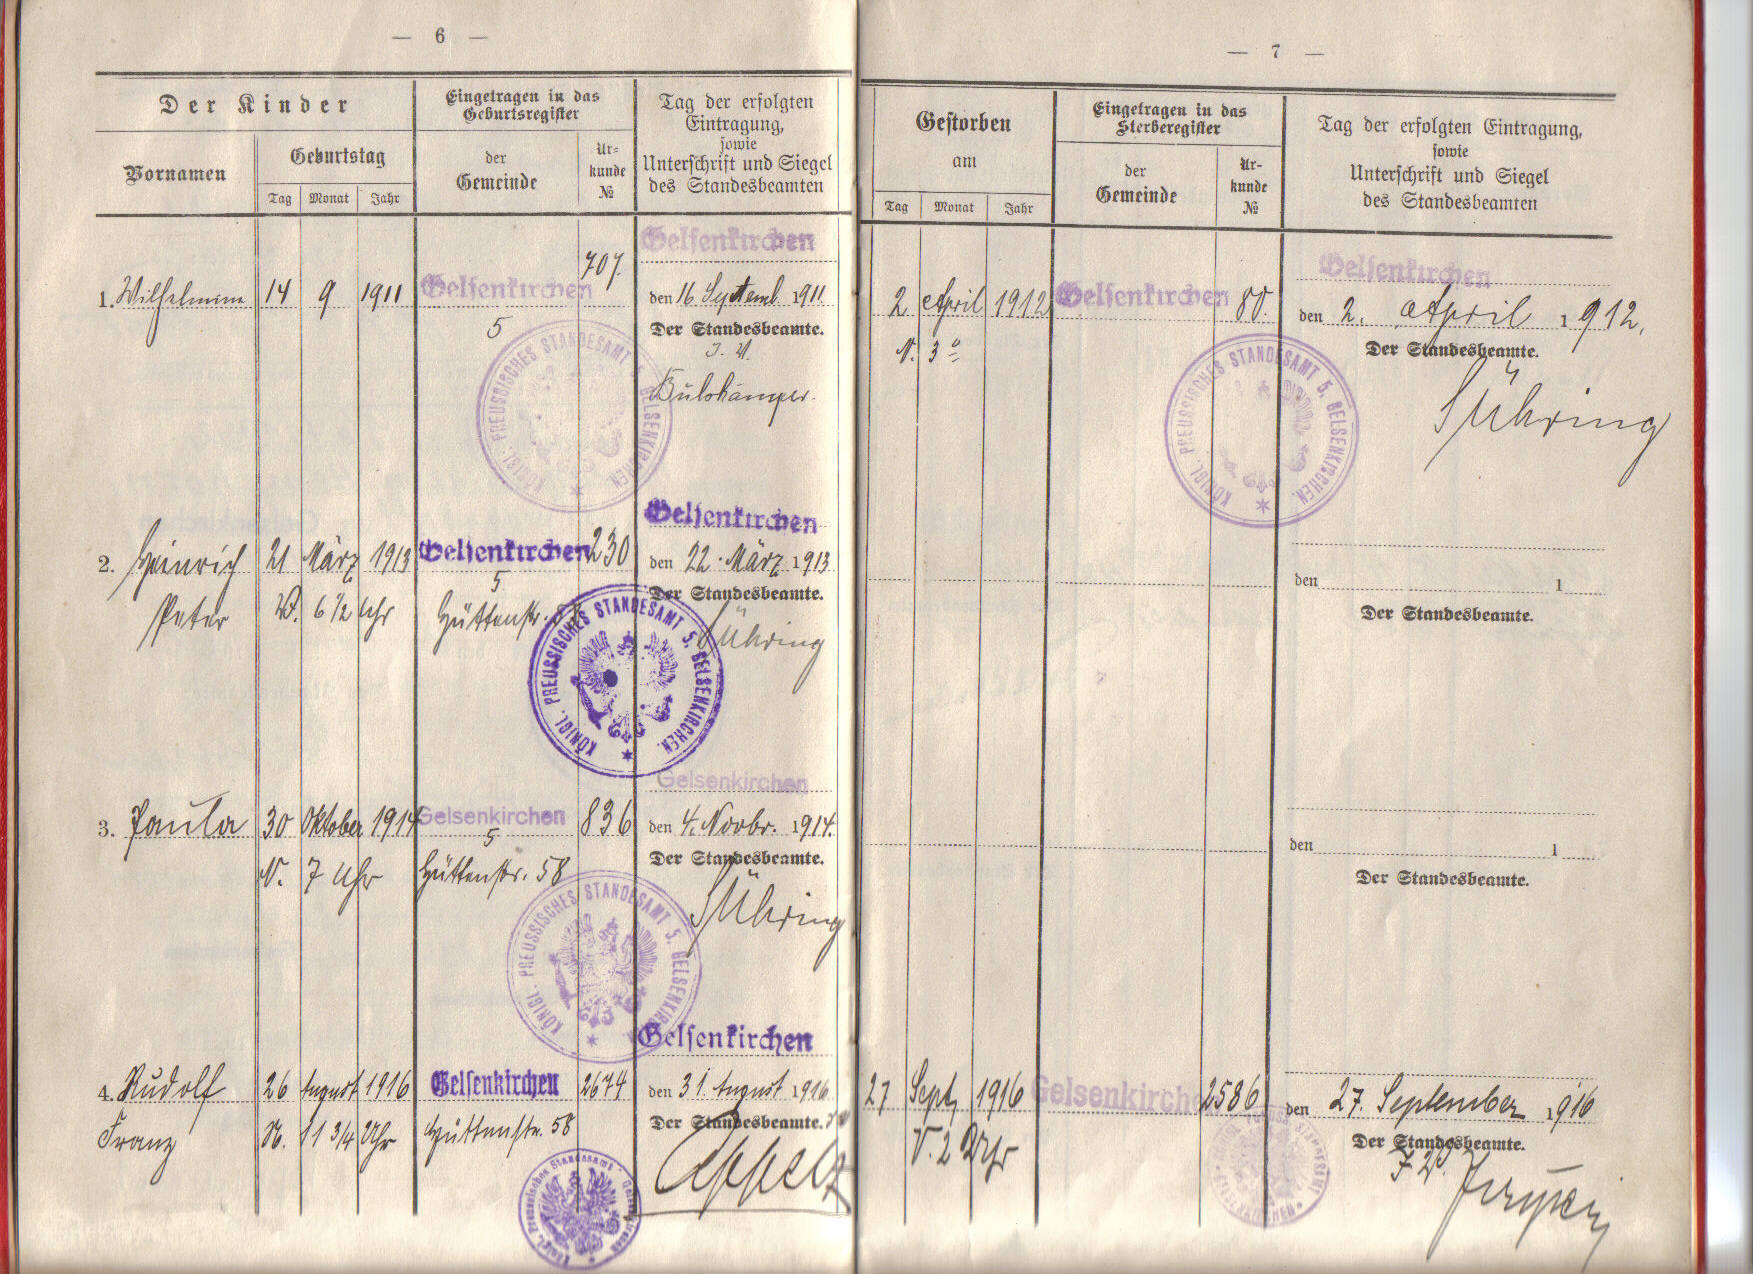 — 6 —
Der Kinder
Eingetragen in das
Geburtsregister
Tag der erfolgten
Eintragung,
sowie
Unterschrift und Siegel
des Standesbeamten
Vornamen
Geburtstag
der
Gemeinde
Ur-
kunde
№
Tag Monat Jahr
Gelsenkirchen
1. 14 9 1911 Gelsenkirchen 707. den 16. Septemb. 1911
5
Der Standesbeamte.
KÖNIGL. PREUSSISCHES STANDESAMT 5, GELSENKIRCHEN.
Gelsenkirchen
2. Heinrich 21 März 1913 Gelsenkirchen 230 den 22. März 1913
5
Peter 6 1/2 Uhr Hüttenstr. 58
Der Standesbeamte.
Sühring
KÖNIGL. PREUSSISCHES STANDESAMT 5, GELSENKIRCHEN.
Gelsenkirchen
3. Paula 30 Oktober 1914 Gelsenkirchen 836 den 4. Novbr. 1914.
5
N. 7 Uhr Hüttenstr. 58
Der Standesbeamte.
Sühring
KÖNIGL. PREUSSISCHES STANDESAMT 5, GELSENKIRCHEN.
Gelsenkirchen
4. Rudolf 26 August 1916 Gelsenkirchen 2674 den 31. August 1916
Franz N. 11 3/4 Uhr Hüttenstr. 58
Der Standesbeamte.
— 7 —
Gestorben
am
Eingetragen in das
Sterberegister
Tag der erfolgten Eintragung,
sowie
Unterschrift und Siegel
des Standesbeamten
der
Gemeinde
Ur-
kunde
№
Tag Monat Jahr
Gelsenkirchen
2 April 1912 Gelsenkirchen 80. den 2. April 1912.
N. 3
Der Standesbeamte.
Sühring
KÖNIGL. PREUSSISCHES STANDESAMT 5, GELSENKIRCHEN.
den 1
Der Standesbeamte.
den 1
Der Standesbeamte.
27 Sept. 1916 Gelsenkirchen 2586 den 27. September 1916
V. 2 Uhr
Der Standesbeamte.